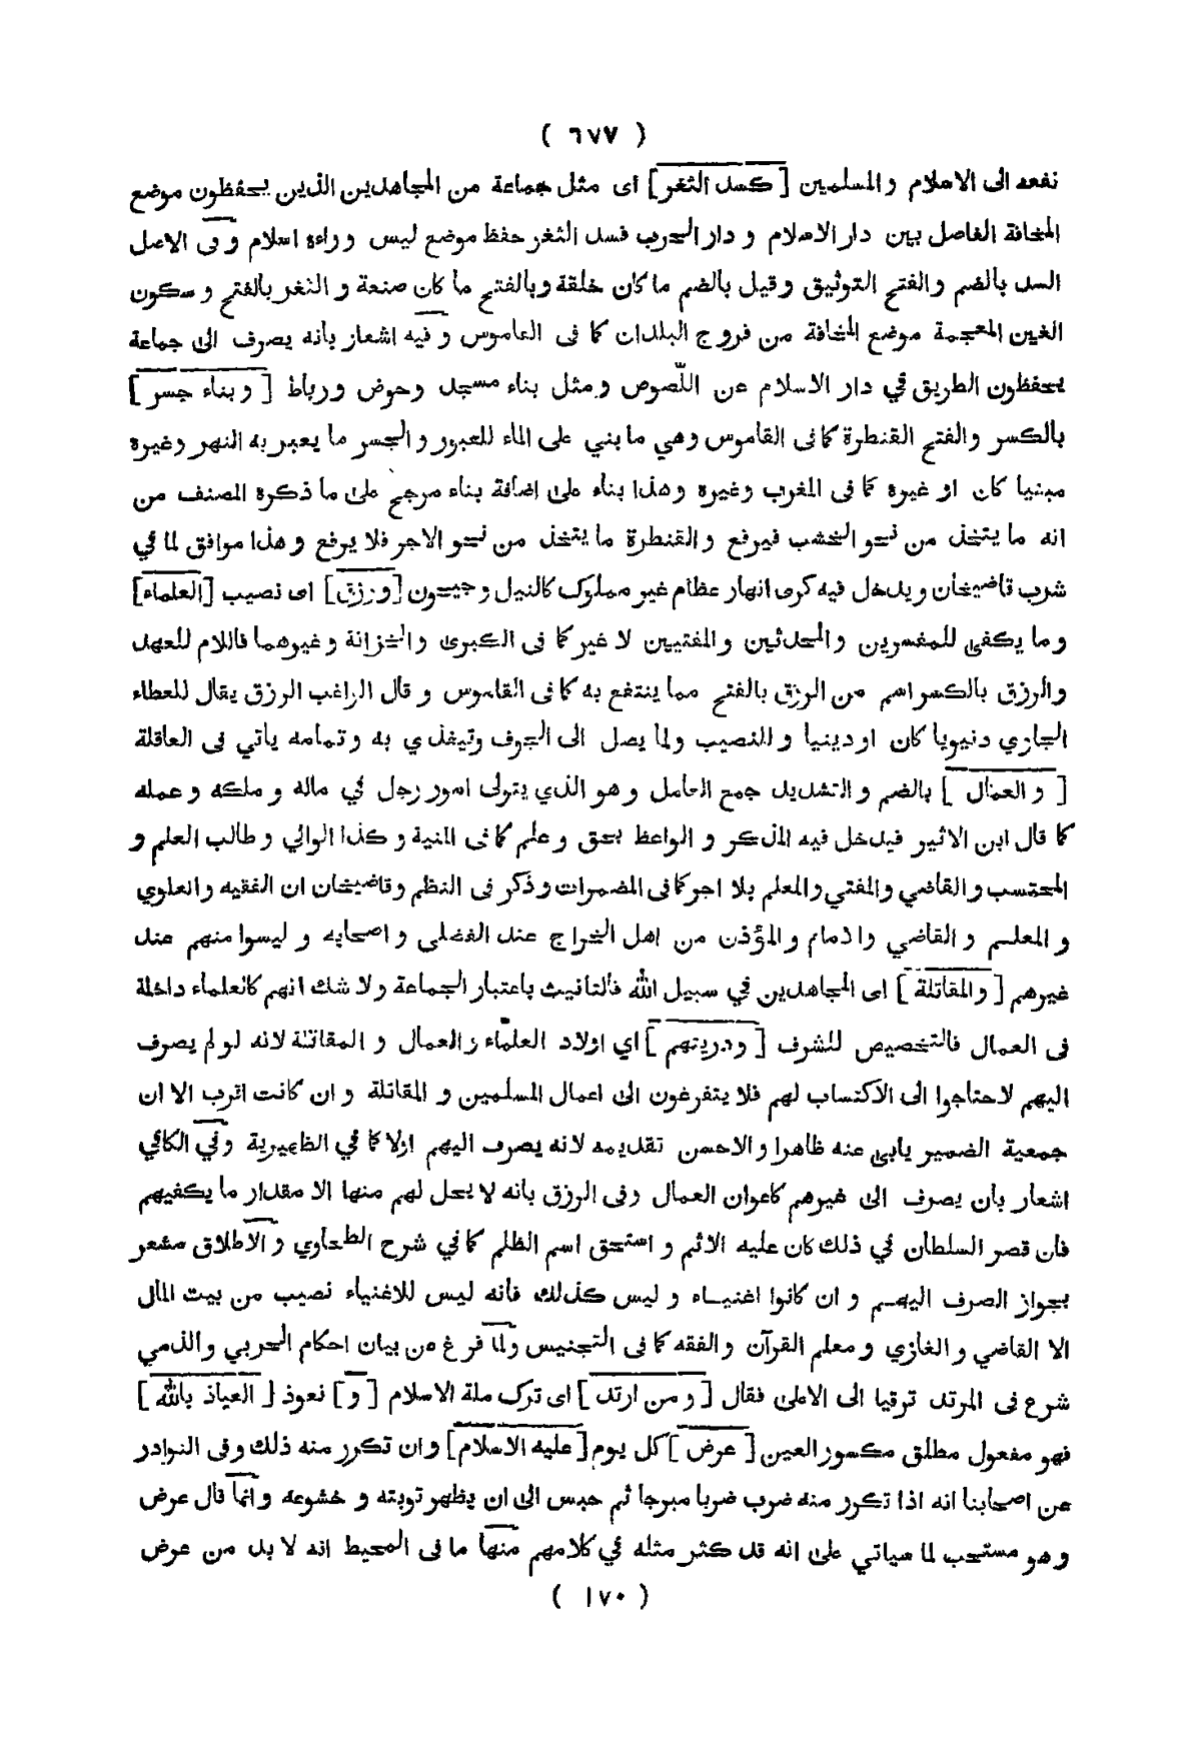 ( ٦٧٧ )
نفعه الى الاسلام والمسلمين [ كسد الثغر ] اى مثل جماعة من المجاهدين الذين يحفظون موضع
المخافة الفاصل بين دار الاسلام و دار الحرب فسد الثغر حفظ موضع ليس وراءه اسلام و فى الاصل
السد بالضم والفتح التوثيق وقيل بالضم ما كان خلقة وبالفتح ما كان صنعة و الثغر بالفتح و سكون
الغين المعجمة موضع المخافة من فروج البلدان كما فى القاموس و فيه اشعار بانه يصرف الى جماعة
يحفظون الطريق في دار الاسلام عن اللّصوص ومثل بناء مسجد وحوض ورباط [ وبناء جسر ]
بالكسر والفتح القنطرة كما فى القاموس وهي ما بني على الماء للعبور والجسر ما يعبر به النهر وغيره
مبنيا كان او غيره كما فى المغرب وغيره وهذا بناء على اضافة بناء مرجح على ما ذكره المصنف من
انه ما يتخذ من نحو الخشب فيرفع والقنطرة ما يتخذ من نحو الاجر فلا يرفع وهذا موافق لما في
شرب قاضيخان ويدخل فيه كرى انهار عظام غير مملوك كالنيل وجيحون [ ورزق ] اى نصيب [ العلماء ]
وما يكفى للمفسرين والمحدثين والمفتيين لا غير كما فى الكبرى والخزانة وغيرهما فاللام للعهد
والرزق بالكسر اسم من الرزق بالفتح مما ينتفع به كما فى القاموس و قال الراغب الرزق يقال للعطاء
الجاري دنيويا كان اودينيا وللنصيب ولما يصل الى الجوف وتيغذي به وتمامه ياتي فى العاقلة
[ و العمال ] بالضم و التشديد جمع العامل و هو الذي يتولى امور رجل في ماله و ملكه و عمله
كما قال ابن الاثير فيدخل فيه المذكر و الواعظ بحق و علم كما فى المنية و كذا الوالي و طالب العلم و
المحتسب والقاضي والمفتي والمعلم بلا اجر كما فى المضمرات وذكر فى النظم وقاضيخان ان الفقيه والعلوي
و المعلم و القاضي والامام والمؤذن من اهل الخراج عند الفضلى و اصحابه و ليسوا منهم عند
غيرهم [ والمقاتلة ] اى المجاهدين في سبيل الله فالتانيث باعتبار الجماعة ولا شك انهم كالعلماء داخلة
فى العمال فالتخصيص للشرف [ وذريتهم ] اي اولاد العلماء والعمال و المقاتلة لانه لو لم يصرف
اليهم لاحتاجوا الى الاكتساب لهم فلا يتفرغون الى اعمال المسلمين و المقاتلة و ان كانت اقرب الا ان
جمعية الضمير يابى عنه ظاهرا والاحسن تقديمه لانه يصرف اليهم اولا كما في الظهيرية وفي الكافي
اشعار بان يصرف الى غيرهم كاعوان العمال وفى الرزق بانه لا يحل لهم منها الا مقدار ما يكفيهم
فان قصر السلطان في ذلك كان عليه الاثم و استحق اسم الظلم كما في شرح الطحاوي و الاطلاق مشعر
بجواز الصرف اليهم و ان كانوا اغنياء و ليس كذلك فانه ليس للاغنياء نصيب من بيت المال
الا القاضي والغازي ومعلم القرآن والفقه كما فى التجنيس ولما فرغ من بيان احكام الحربي والذمي
شرع فى المرتد ترقيا الى الاعلى فقال [ ومن ارتد ] اى ترك ملة الاسلام [ و ] نعوذ [ العياذ بالله ]
فهو مفعول مطلق مكسور العين [ عرض ] كل يوم [ عليه الاسلام ] وان تكرر منه ذلك وفى النوادر
عن اصحابنا انه اذا تكرر منه ضرب ضربا مبرحا ثم حبس الى ان يظهر توبته و خشوعه وانما قال عرض
وهو مستحب لما سياتي على انه قد كثر مثله في كلامهم منها ما فى المحيط انه لا بد من عرض
( ١٧٠ )